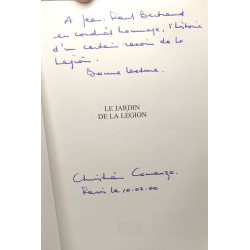 A Jean-Paul Bertrand
en cordial hommage, l'histoire
d'un certain recoin de la
Légion.
Bonne lecture.
LE JARDIN
DE LA LÉGION
Christian
Paris le 10.02.00